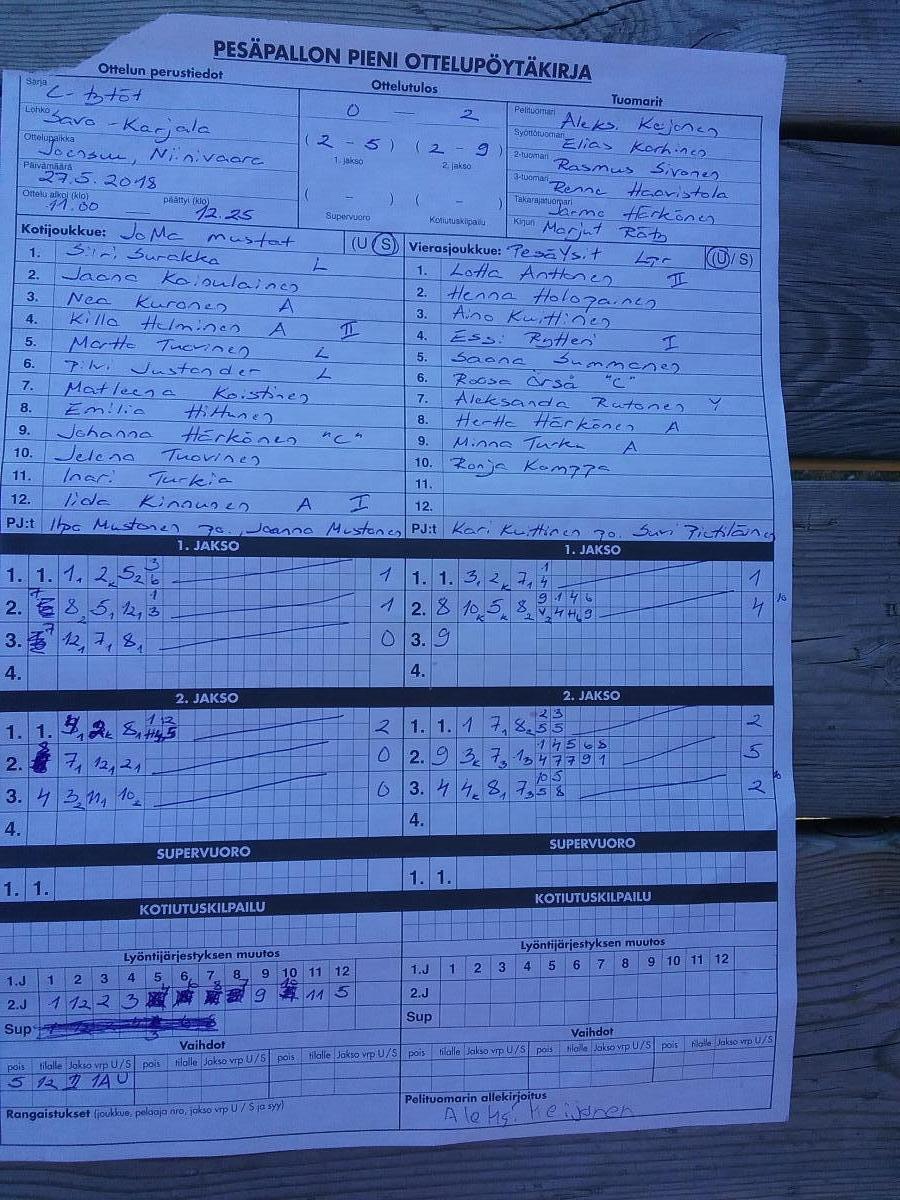 PESÄPALLON PIENI OTTELUPÖYTÄKIRJA
Ottelun perustiedot
Sarja C- tytöt
Lohko Savo-Karjala
Ottelupaikka Joensuu, Niinivaara
Päivämäärä 27.5.2018
Ottelu alkoi (klo) 11.00 — päättyi (klo) 12.25
Ottelutulos
0 — 2
(2 - 5) (2 - 9)
1. jakso 2. jakso
( - ) ( - )
Supervuoro Kotiutuskilpailu
Tuomarit
Pelituomari Aleks. Keijonen
Syöttötuomari Elias Korhinen
2-tuomari Rasmus Sivonen
3-tuomari Haaristola
Takarajatuomari Jarmo Härkönen
Kirjuri Marjut
Kotijoukkue: JoMa mustat (U S)
1. Siiri Surakka L
2. Jaana Kainulainen
3. Nea Kuronen A
4. Killa Helminen A II
5. Martta Tuovinen L
6. Pilvi Justander L
7. Matleena Koistinen
8. Emilia Hiltunen
9. Johanna Härkönen "C"
10. Jelena Tuovinen
11. Inari Turkia
12. Iida Kinnunen A I
PJ:t Ilpo Mustonen Joanna Mustonen
Vierasjoukkue: Pesäysit Lpr (U / S)
1. Lotta Anttonen II
2. Henna Holopainen
3. Aino Kuittinen
4. Essi Rytteri I
5. Saana Summanen
6. Roosa Örså "C"
7. Aleksanda Rutonen Y
8. Hertta Härkönen A
9. Minna Turka A
10. Ronja Kamppa
11.
12.
PJ:t Kari Kuittinen Suvi Pietiläinen
1. JAKSO
1. 1. 1, 2k 5 2 3 6 1
2. 8 5, 12, 1 3 1
3. 7 12, 7, 8, 0
4.
1. JAKSO
1. 1. 3, 2k 7, 1 4 1
2. 8 10k 5k 8 9 1 4 6 4
3. 9
4.
2. JAKSO
1. 1. 8, 1 12 2
2. 8 7, 12, 2, 0
3. 4 3 2 11, 10 2 0
4.
2. JAKSO
1. 1. 1 7, 8 2 2 3 5 5 2
2. 9 3k 7 3 1 3 1 4 5 6 8 4 7 7 9 1 5
3. 4 4k 8, 7 3 10 5 5 8 2
4.
SUPERVUORO
1. 1.
SUPERVUORO
1. 1.
KOTIUTUSKILPAILU
KOTIUTUSKILPAILU
Lyöntijärjestyksen muutos
1.J 1 2 3 4 5 6 7 8 9 10 11 12
2.J 1 12 2 3 4 6 8 7 9 10 11 5
Sup
Lyöntijärjestyksen muutos
1.J 1 2 3 4 5 6 7 8 9 10 11 12
2.J
Sup
Vaihdot
pois tilalle Jakso vrp U/S pois tilalle Jakso vrp U/S pois tilalle Jakso vrp U/S
5 12 II 1A U
Vaihdot
pois tilalle Jakso vrp U/S pois tilalle Jakso vrp U/S pois tilalle Jakso vrp U/S
Rangaistukset (joukkue, pelaaja nro, jakso vrp U / S ja syy)
Pelituomarin allekirjoitus
Aleks. Keijonen